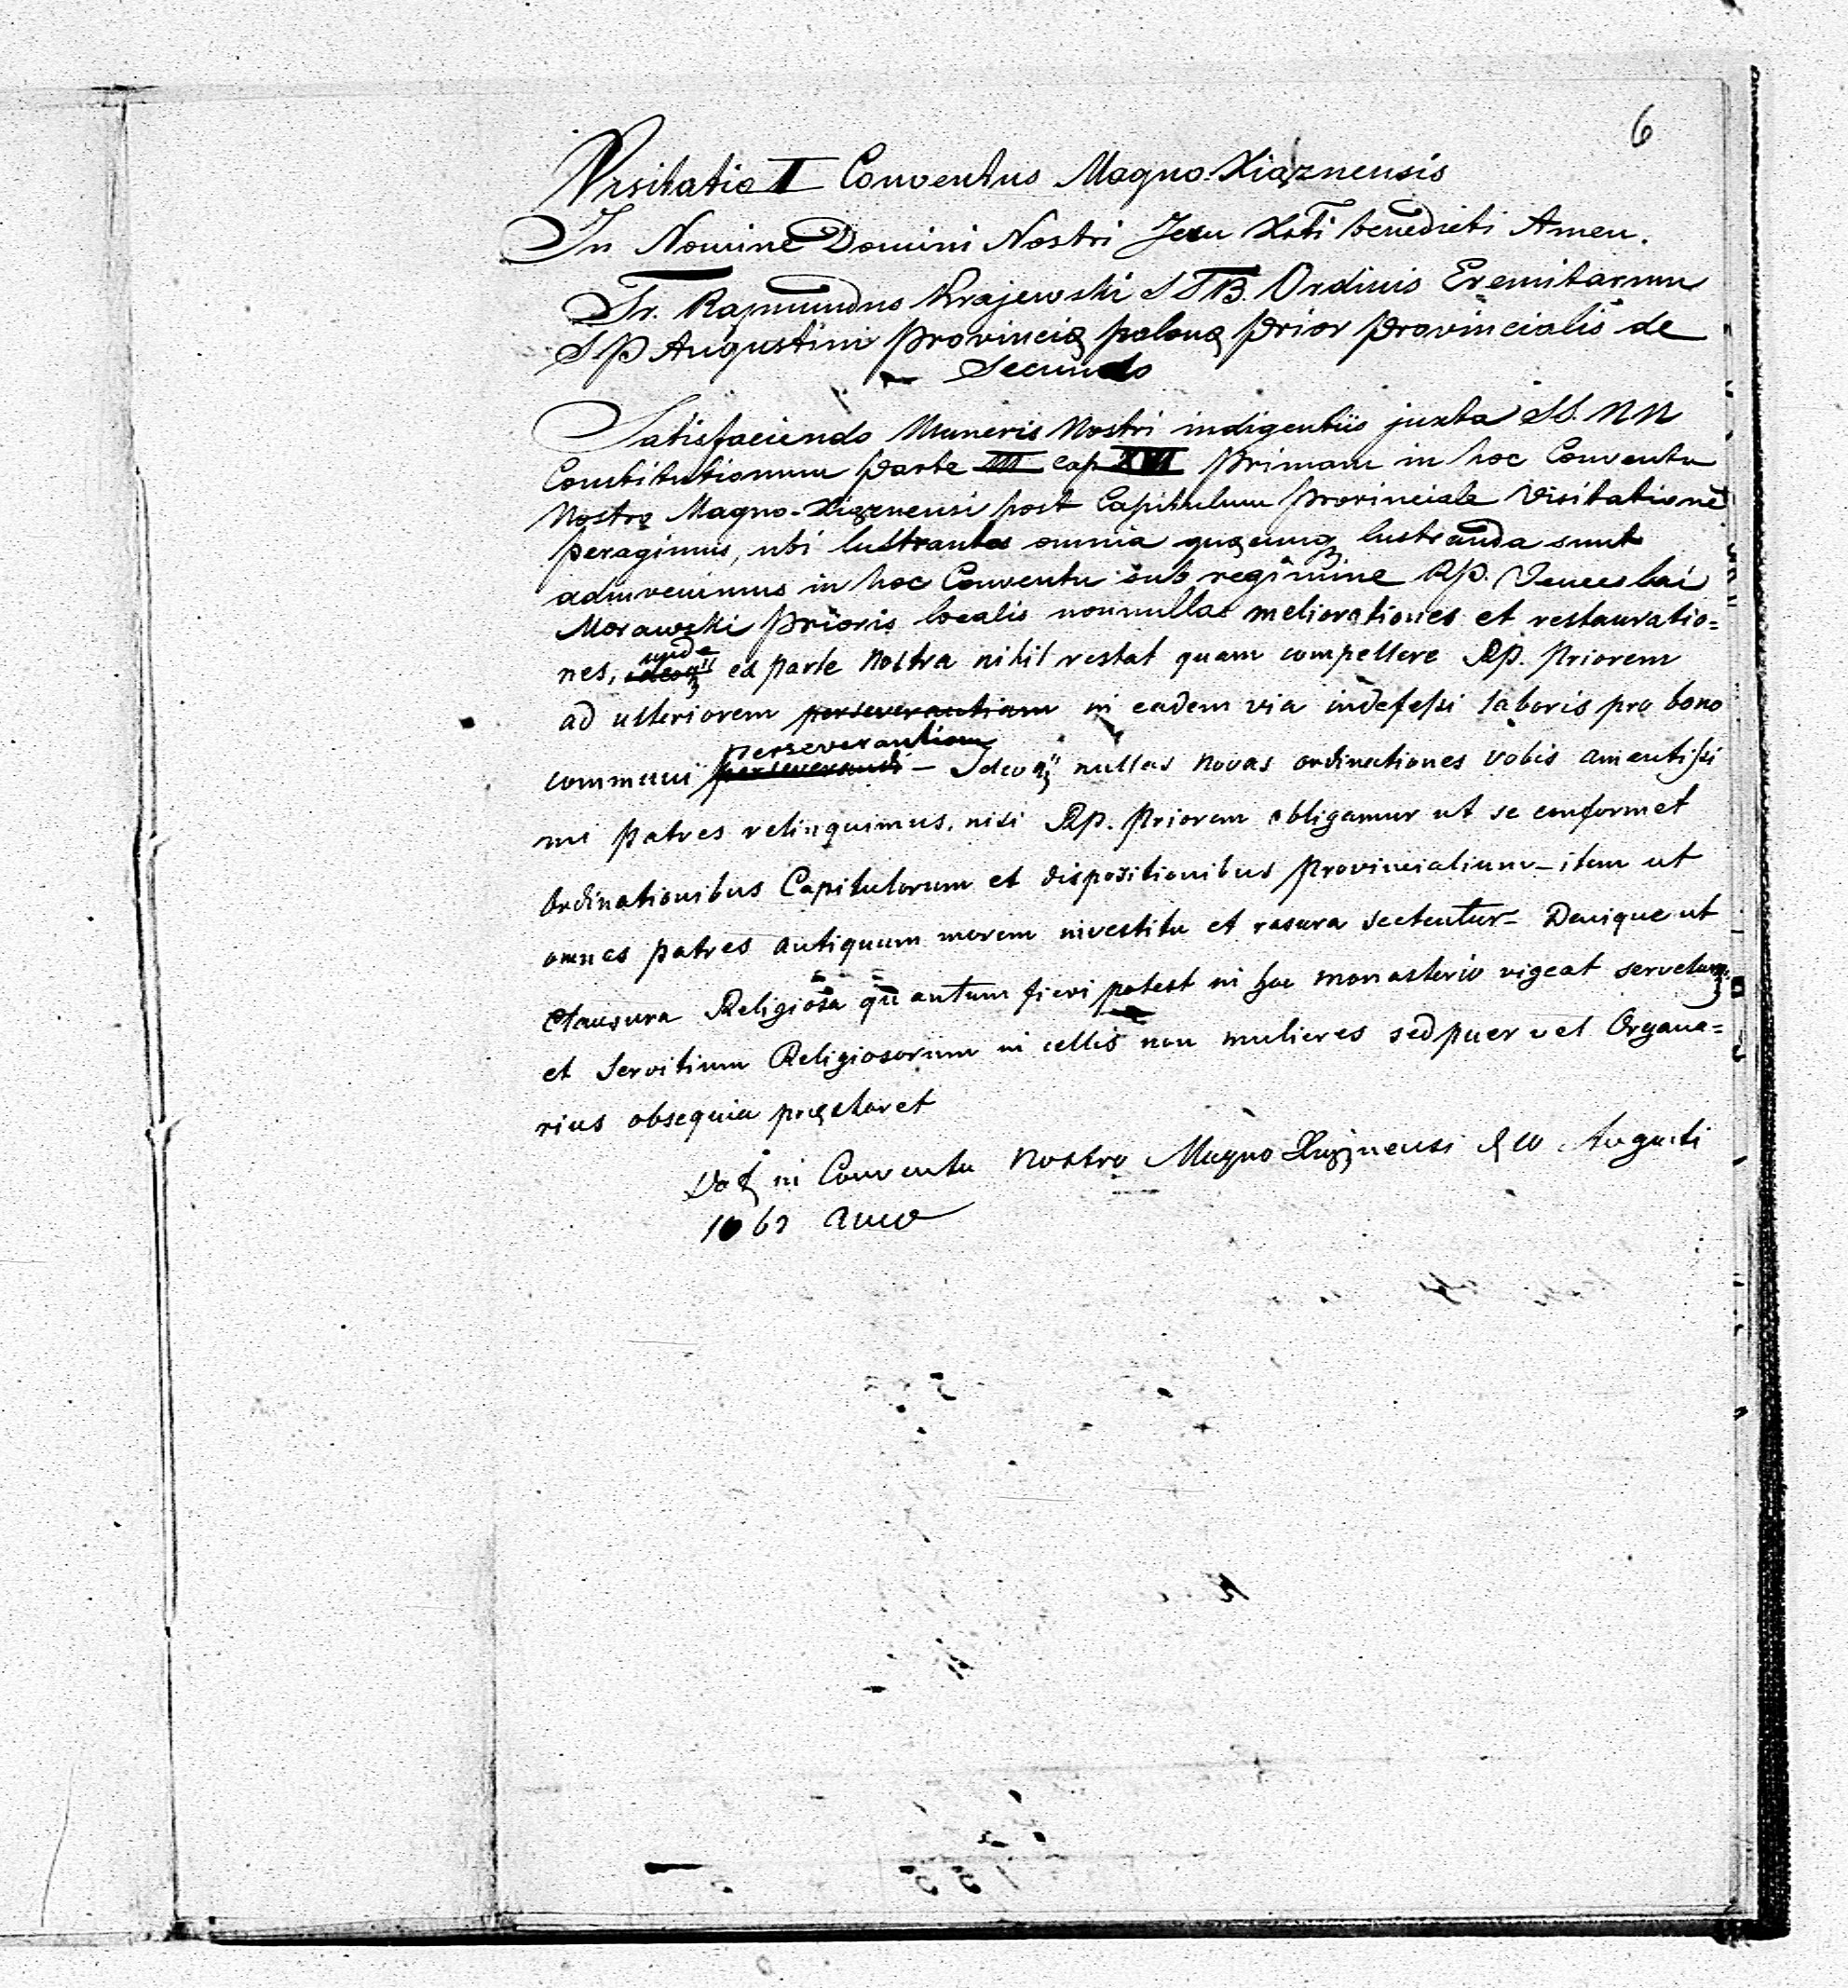 6
Visitatio I Conventus Magno-Xiąznensis
In Nomine Domini Nostri Jesu Xsti benedicti Amen.
Fr. Raymundus Krajewski STB. Ordinis Eremitarum
SP Augustini Provincię polonę Prior Provincialis de
Secundo
Satisfaciendo Muneris Nostri indigentiis juxta SS. NN
Constitutionum Parte III cap XVI primam in hoc Conventu
Nostro Magno-Xiąznensi post Capitulum provinciale Visitationē
peragimus, ubi lustrantes omnia quęcunqꝫ lustranda sunt
adinvenimus in hoc Conventu sub regimine RP. Venceslai
Morawski Prioris localis nonnullas meliorationes et restauratio=
nes, unde ex parte Nostra nihil restat quam compellere RP. Priorem
ad ulteriorem perseverantiam in eadem via indefessi laboris pro bono
communi perseverantiam – Ideoqꝫ nullas novas ordinationes vobis amantissi
mi patres relinquimus, nisi RP. Priorem obligamur ut se conformet
Ordinationibus Capitulorum et dispositionibus Provincialium – item ut
omnes patres antiquum morem in vestitu et rasura sectentur – Denique ut
Clausura Religiosa quantum fieri potest in hoc monasterio vigeat
et Servitium Religiosorum in cellis non mulieres sed puer vel Organa=
rius obsequia pręstaret
in Conventu Nostro Magno Augusti